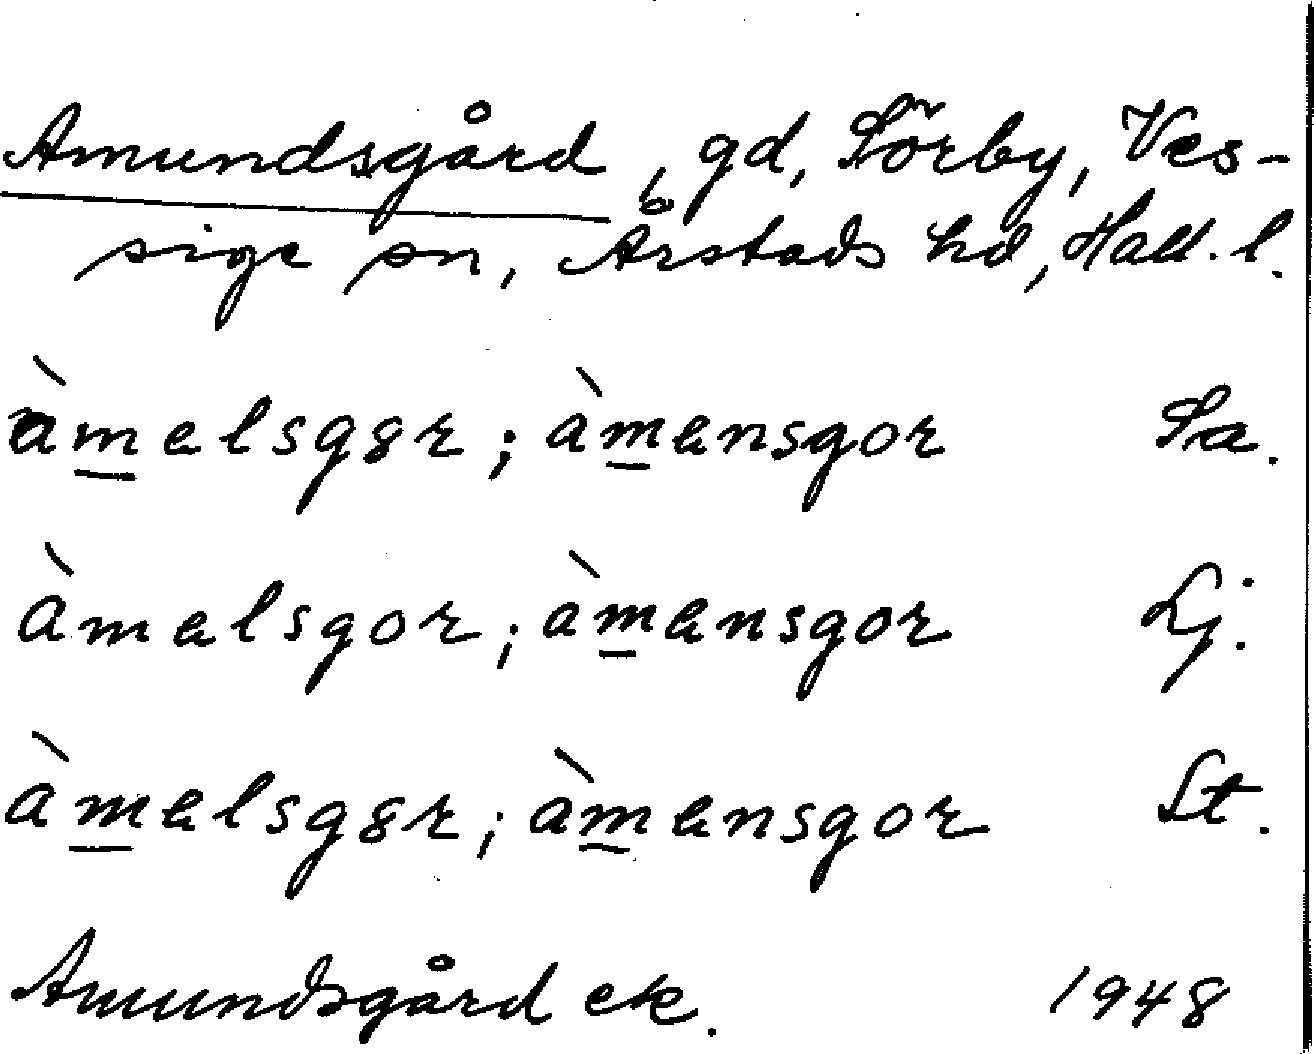 Amundsgård, gd, Sörby, Ves-
sige sn, Årstads hd, Hall. l.
àmelsg8r; àmensgor Sa.
àmelsgor; àmensgor Lj.
àmelsg8r; àmensgor St.
Amundsgård ek. 1948